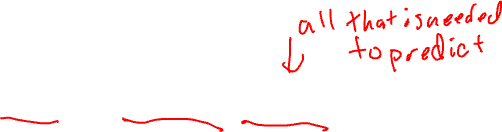 all that is needed
to predict